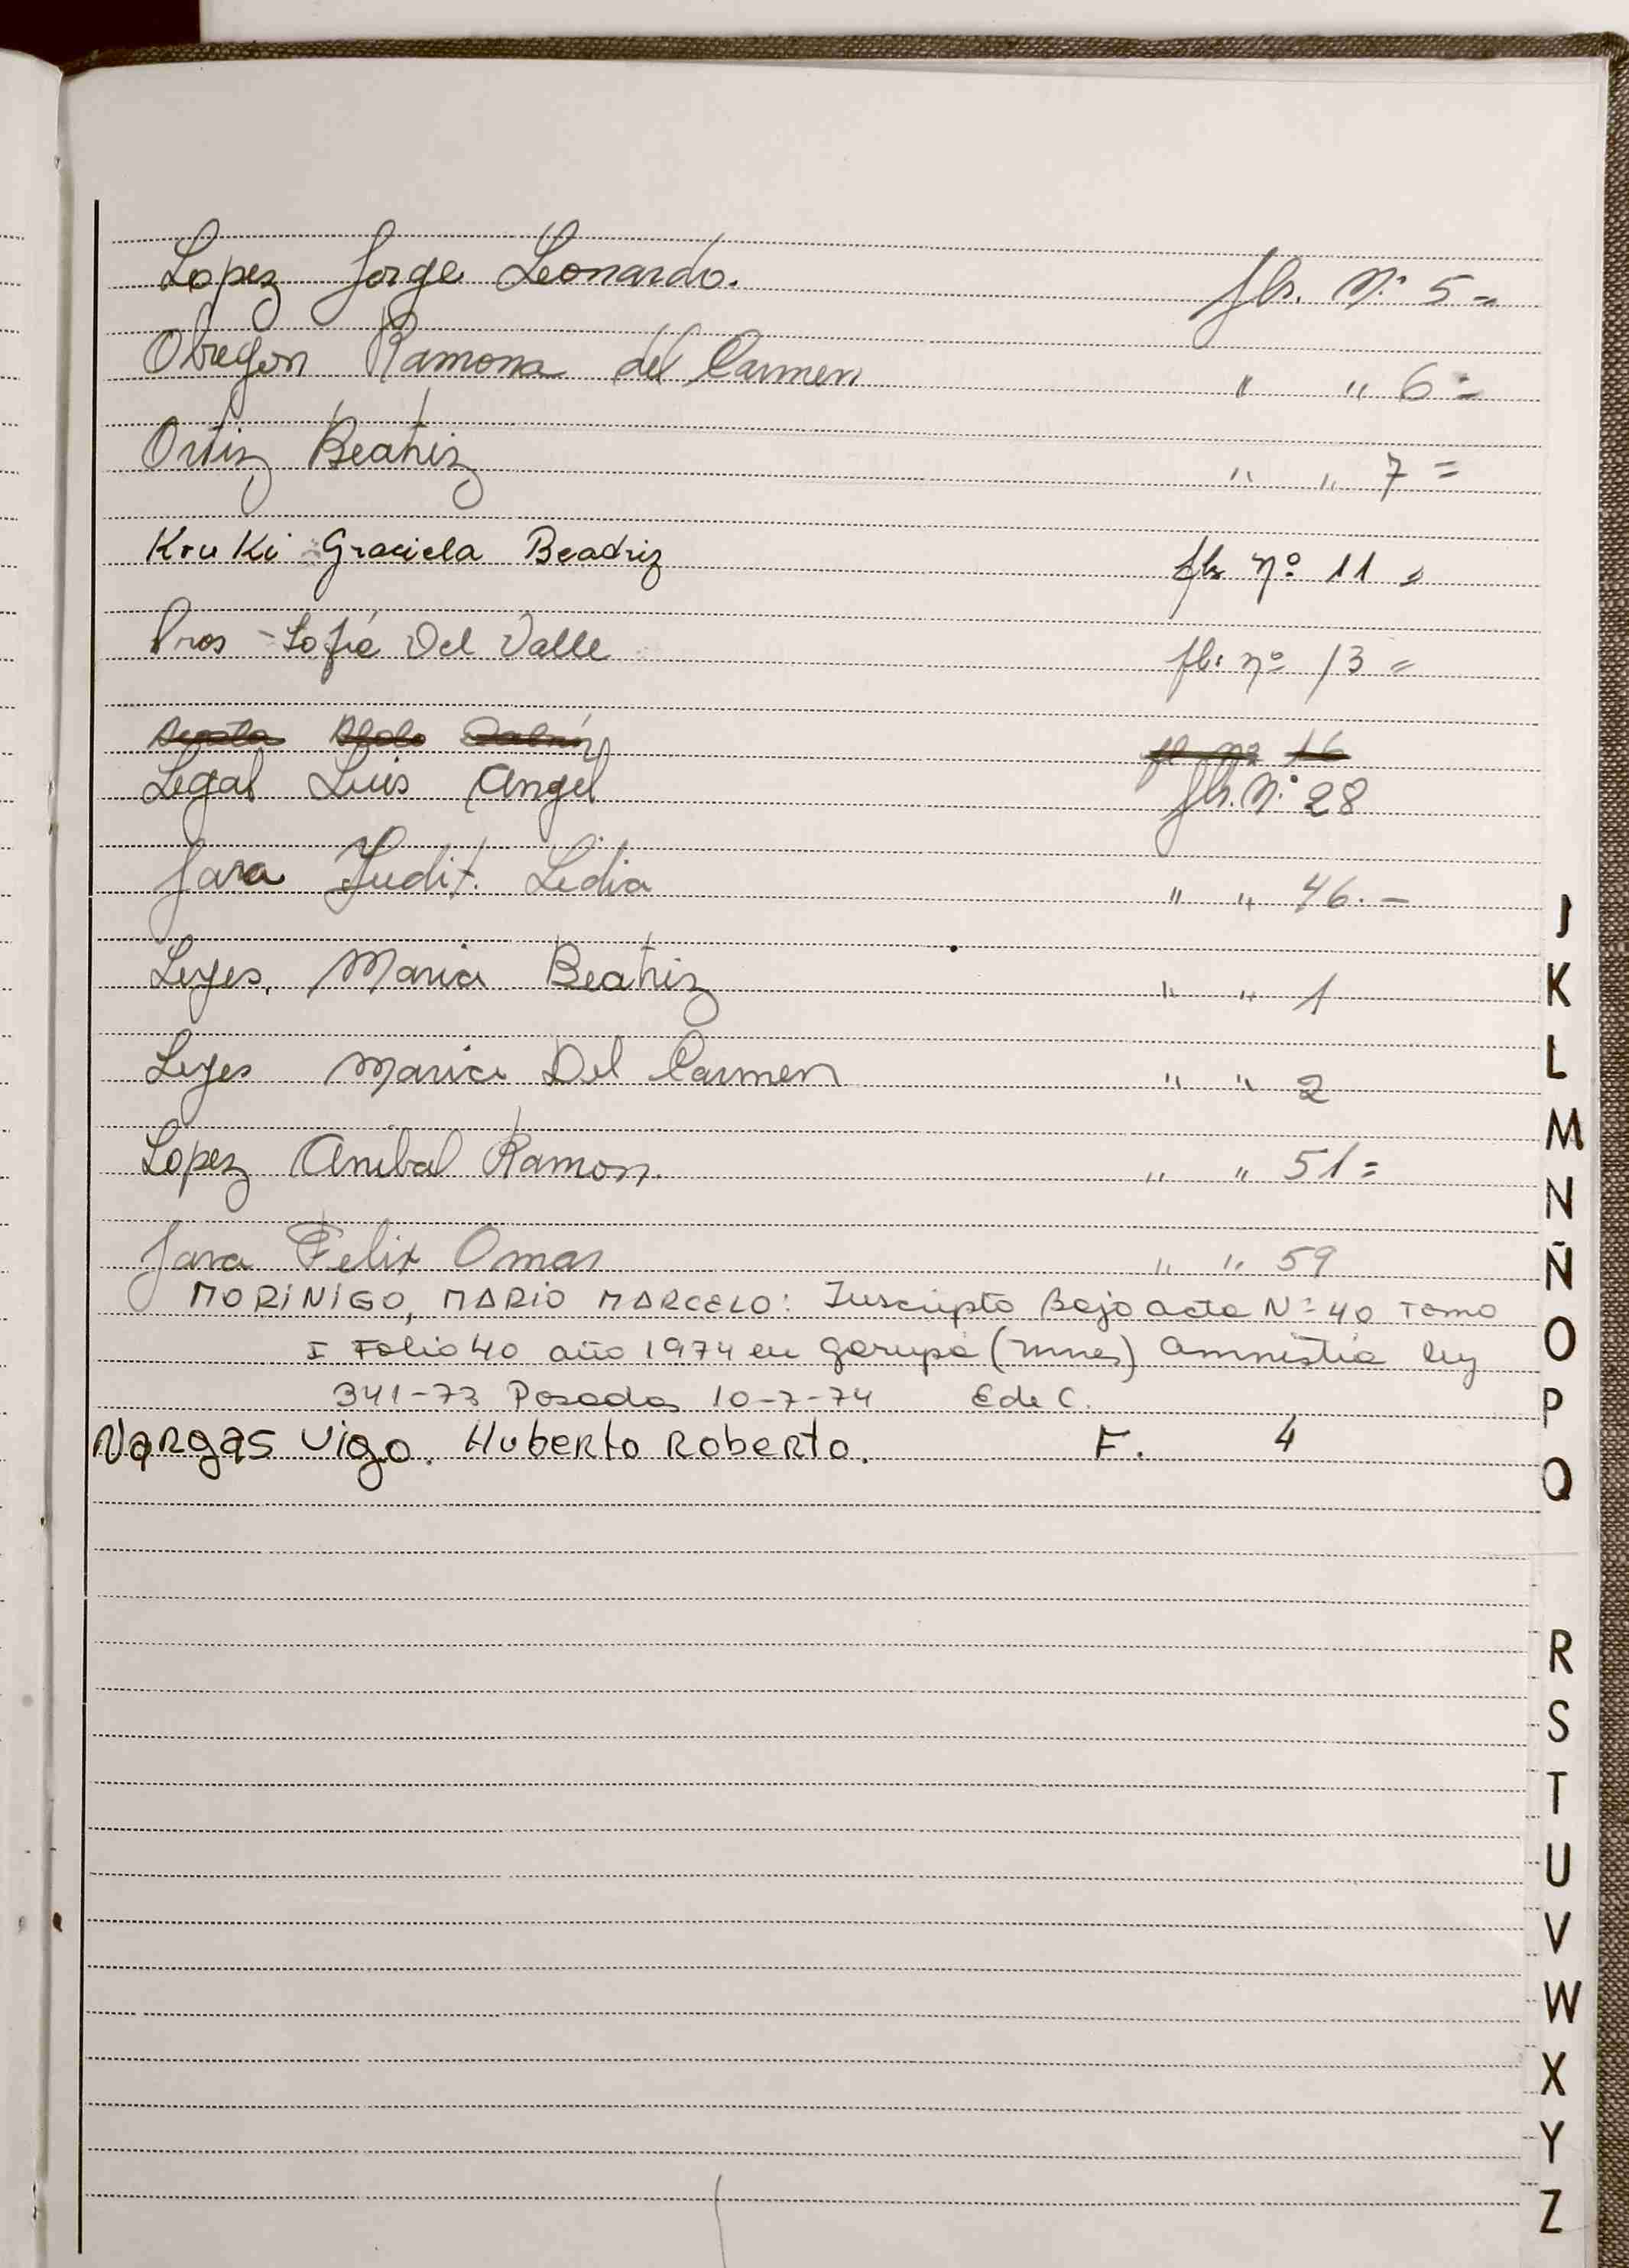 Lopez Jorge Leonardo. fls. Nº 5 =
Obregon Ramona del Carmen " " 6 =
Ortiz Beatriz " " 7 =
KruKi Graciela Beadriz fls nº 11 =
Pros - Sofia Del Valle fls nº 13 =
16
Legal Luis Angel fls. Nº 28
Jara Judit. Lidia " " 46. -
Leyes, Maria Beatriz " " 1
Leyes Maria Del Carmen " " 2
Lopez Anibal Ramon. " " 51 =
Jara Felix Omar " " 59
MORINIGO, MARIO MARCELO: Inscripto Bajo acta Nº 40 Tomo
I Folio 40 año 1974 en Garupá (Mnes) amnistia ley
341-73 Posadas 10-7-74 E de C.
Vargas Vigo. Huberto Roberto. F. 4
J
K
L
M
N
Ñ
O
P
Q
R
S
T
U
V
W
X
Y
Z